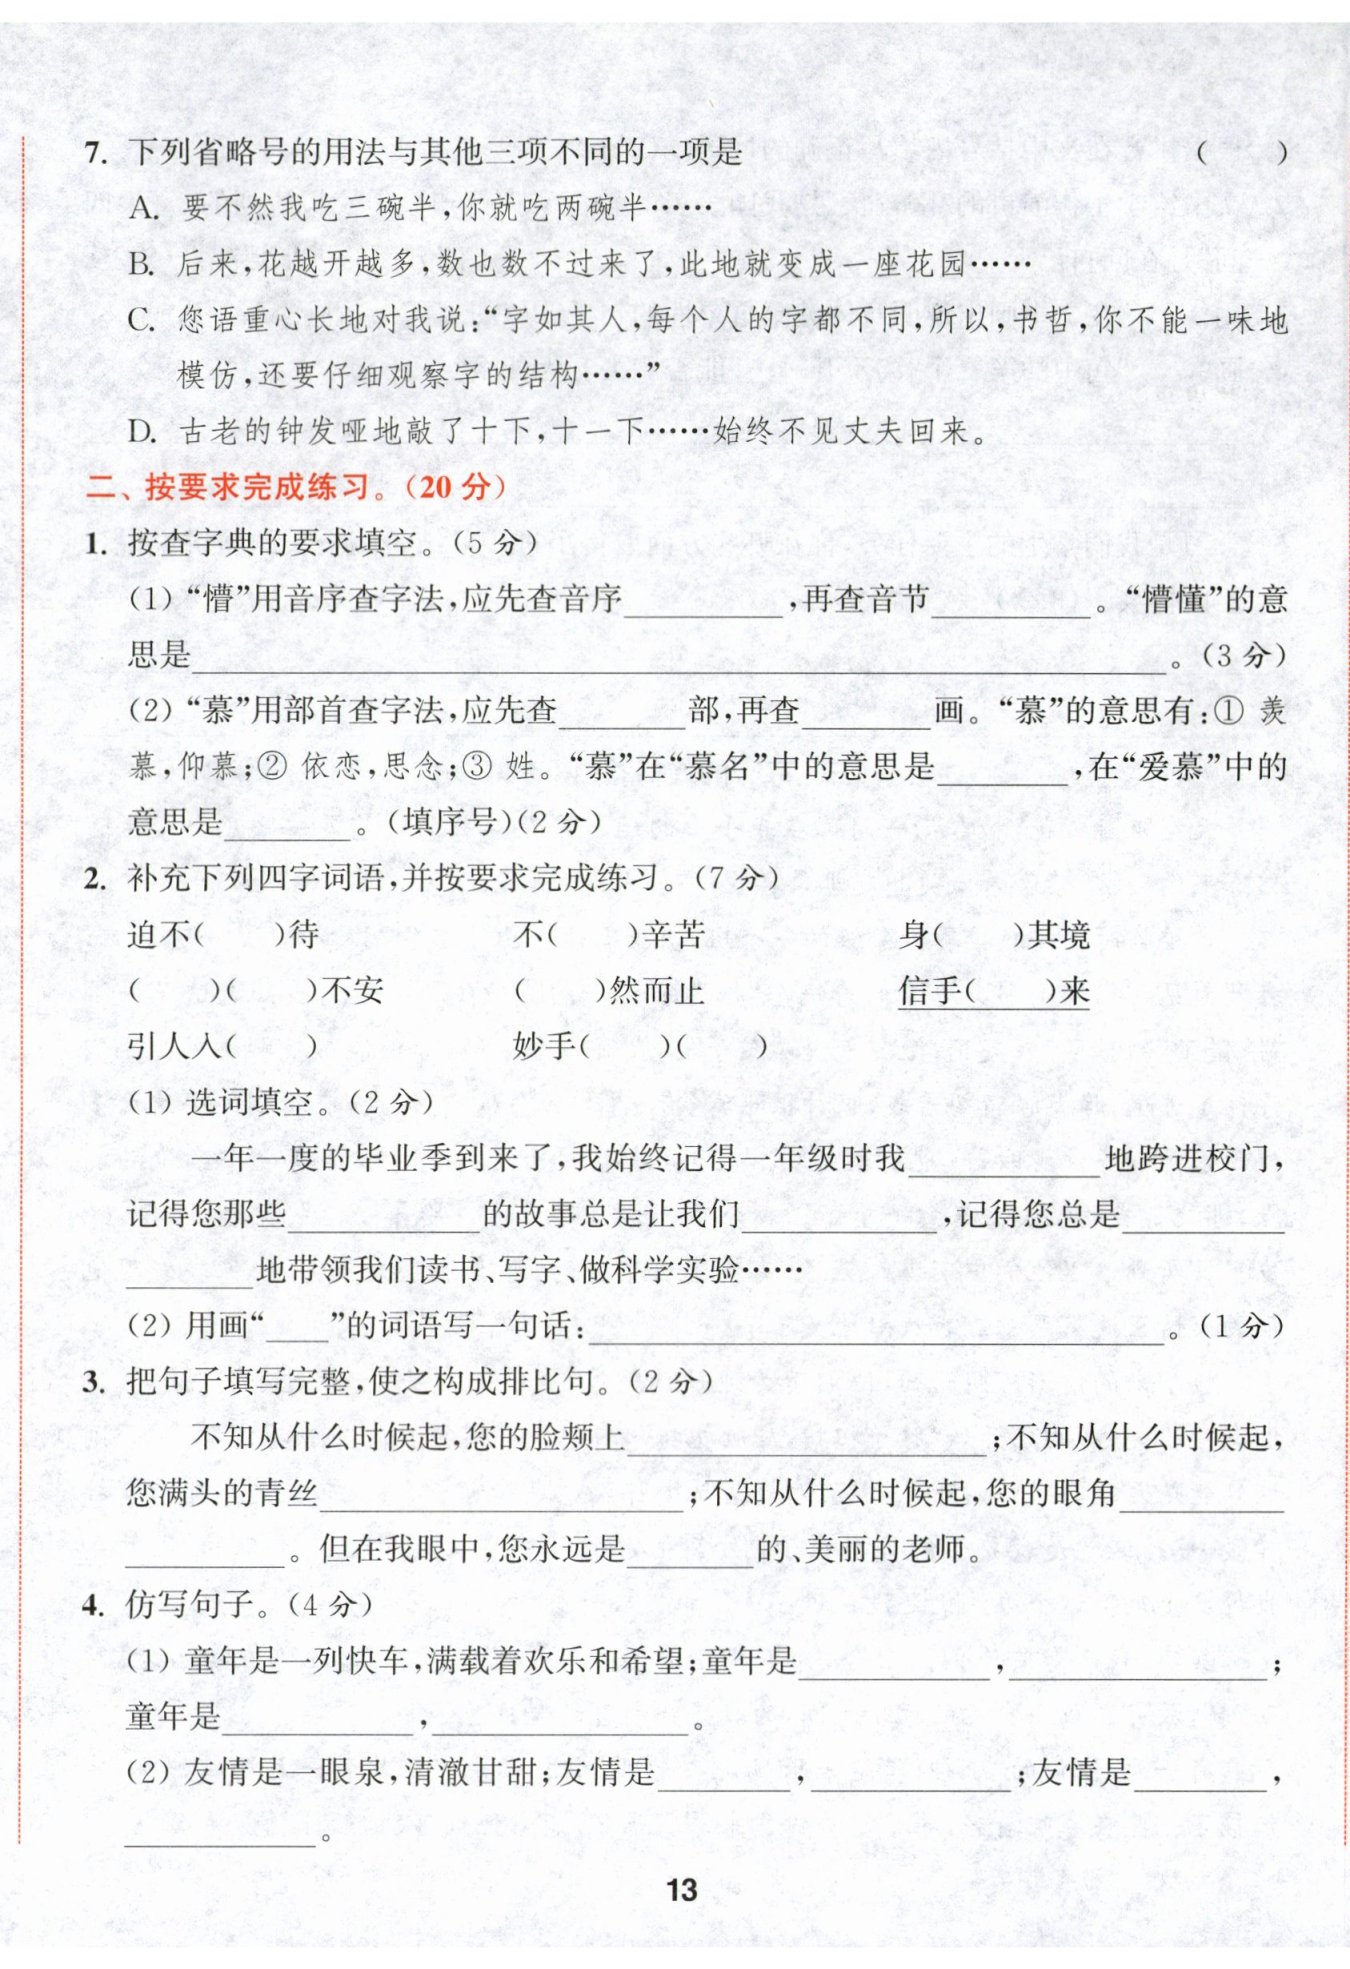 7. 下列省略号的用法与其他三项不同的一项是 (　　)
A. 要不然我吃三碗半,你就吃两碗半……
B. 后来,花越开越多,数也数不过来了,此地就变成一座花园……
C. 您语重心长地对我说:“字如其人,每个人的字都不同,所以,书哲,你不能一味地
模仿,还要仔细观察字的结构……”
D. 古老的钟发哑地敲了十下,十一下……始终不见丈夫回来。
二、按要求完成练习。(20 分)
1. 按查字典的要求填空。(5 分)
(1) “懵”用音序查字法,应先查音序__________,再查音节__________。“懵懂”的意
思是____________________。(3 分)
(2) “慕”用部首查字法,应先查________部,再查________画。“慕”的意思有:① 羡
慕,仰慕;② 依恋,思念;③ 姓。“慕”在“慕名”中的意思是________,在“爱慕”中的
意思是________。(填序号)(2 分)
2. 补充下列四字词语,并按要求完成练习。(7 分)
迫不(　　)待　　不(　　)辛苦　　身(　　)其境
(　　)(　　)不安　　(　　)然而止　　信手(　　)来
引人入(　　)　　妙手(　　)(　　)
(1) 选词填空。(2 分)
一年一度的毕业季到来了,我始终记得一年级时我____________地跨进校门,
记得您那些____________的故事总是让我们____________,记得您总是__________
________地带领我们读书、写字、做科学实验……
(2) 用画“____”的词语写一句话:____________________。(1 分)
3. 把句子填写完整,使之构成排比句。(2 分)
不知从什么时候起,您的脸颊上____________________;不知从什么时候起,
您满头的青丝____________________;不知从什么时候起,您的眼角__________
__________。但在我眼中,您永远是________的、美丽的老师。
4. 仿写句子。(4 分)
(1) 童年是一列快车,满载着欢乐和希望;童年是____________,________________;
童年是____________,________________。
(2) 友情是一眼泉,清澈甘甜;友情是________,____________;友情是________,
____________。
13